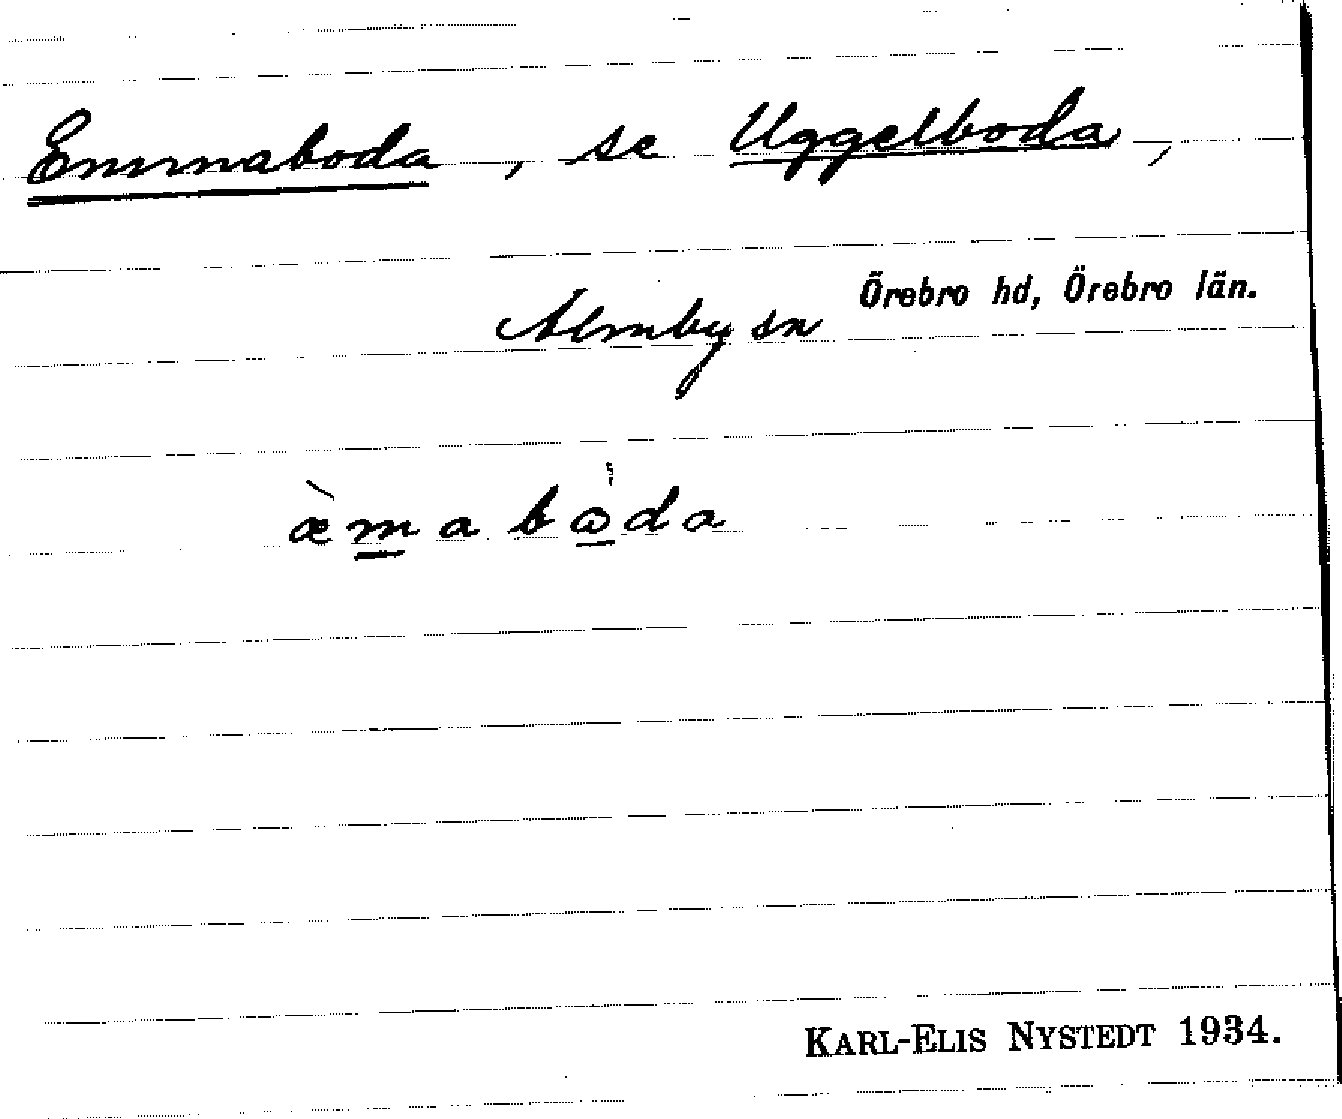 Emmaboda, se Uggelboda,
Almby sn Örebro hd, Örebro län.
æ̀mabὼda
KARL-ELIS NYSTEDT 1934.